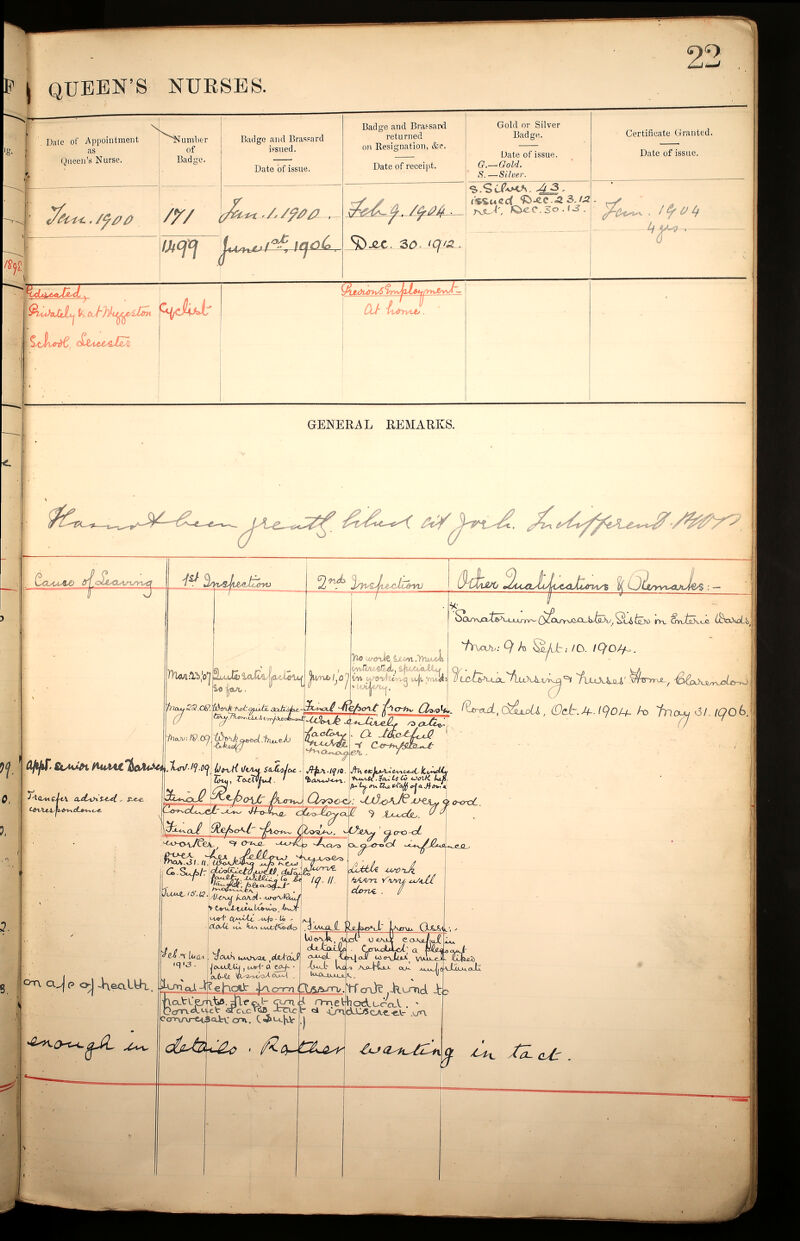 22
QUEEN'S NURSES.
Date of Appointment
as
Queen's Nurse.
Number
of
Badge.
Badge and Brassard
issued.
Date of issue.
Badge and Brassard
returned
on Resignation, &c.
Date of receipt.
Gold or Silver
Badge.
Date of issue.
G.—Gold.
S.—Silver.
Certificate Granted.
Date of issue.
Jan. 1900
171
Jan. 1. 1900.
Feb. 9. 1904.
S. Silver. 43.
issued Dec. 23. 12.
ret. Dec. 30. 13.
Jan. 1904
4 yrs.
1499
June 1st, 1906.
Dec. 30. 1912.
Educated,
Privately & at Wyggeston
School Leicester
Cyclist
Previous Employment—
At home.
GENERAL REMARKS.
Has not been greatly liked at York. Indifferent
Cause of Leaving
1st Inspection
2nd Inspection
Other Qualifications & Remarks:—
Sanatorium Lancaster, Sister in Enteric Wards,
Mar: 9 to Sept: 10. 1904.
Victoria Nursing & Nurses' Home, Clarendon
Road, Leeds, Oct. 4. 1904 to May 31. 1906.
Mar. 23. '07 Quite satisfactory
so far.
June 1, '07 No work seen. Much
interested, specially
in working up
midwifery.
May 22. 08. Work not quite satisfac-
tory. Promises improvement
Final Report from Assn.
Work entirely satis-
factory. A tactful
nurse & competent
manager.
Mar: 18. 09. Work good. Much
liked
appt. Senior Nurse Darwen.
Nov. 19. 09. Work very satisfac-
tory, Tactful.
Apr. 1910. An experienced kindly
Darwen. nurse. Fails to work hap-
pily on the staff of a Home
Transfer advised, see
correspondence
Final Report from Assoc: Work very good.
Conduct in Home disloyal & rude.
Final Report from Assn. Very good
worker, & one who has a good influence
over her fellow nurses
Mar. 31. 11. Working up new
district well, details
faulty, willing to be
taught, pleasant
manner.
Co. Supt:
June 19. 11. Little work
seen very well
done.
June 15. 12. Very hard-working
& conscientious, but
not quite up-to-
date in her methods
Final Report from Assn.:-
Work, not very careful in
details. Conduct, a pleasant
and loyal worker, very much liked
but has rather an unfortunate
manner.
Feb. 1913. Fair nurse, detail
faulty, not a cap-
able
on a/c of health.
Final Report from Assn. Work, kind to
patients. Neat and methodical.
Conduct lacks tact & indiscreet in
conversation. (Supt.)
enough in details. Rather wanting in tact.